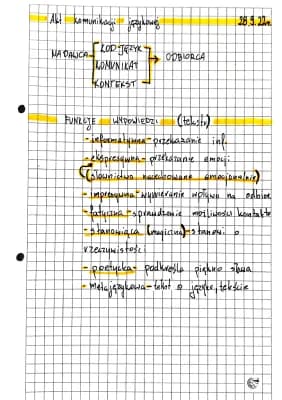 Akt komunikacji językowej 28.9.22r.
KOD-JĘZYK
NADAWCA KOMUNIKAT ODBIORCA
KONTEKST
FUNKCJE WYPOWIEDZI (tekstu)
- informatywna - przekazanie inf.
- ekspresywna - przekazanie emocji
(słownictwo nacechowane emocjonalnie)
- impresywna - wywieranie wpływu na odbiorcę
- fatyczna - sprawdzenie możliwości kontaktu
- stanowiąca (magiczna) - stanowi o
rzeczywistości
- poetycka - podkreśla piękno słowa
- metajęzykowa - tekst o języku, tekście